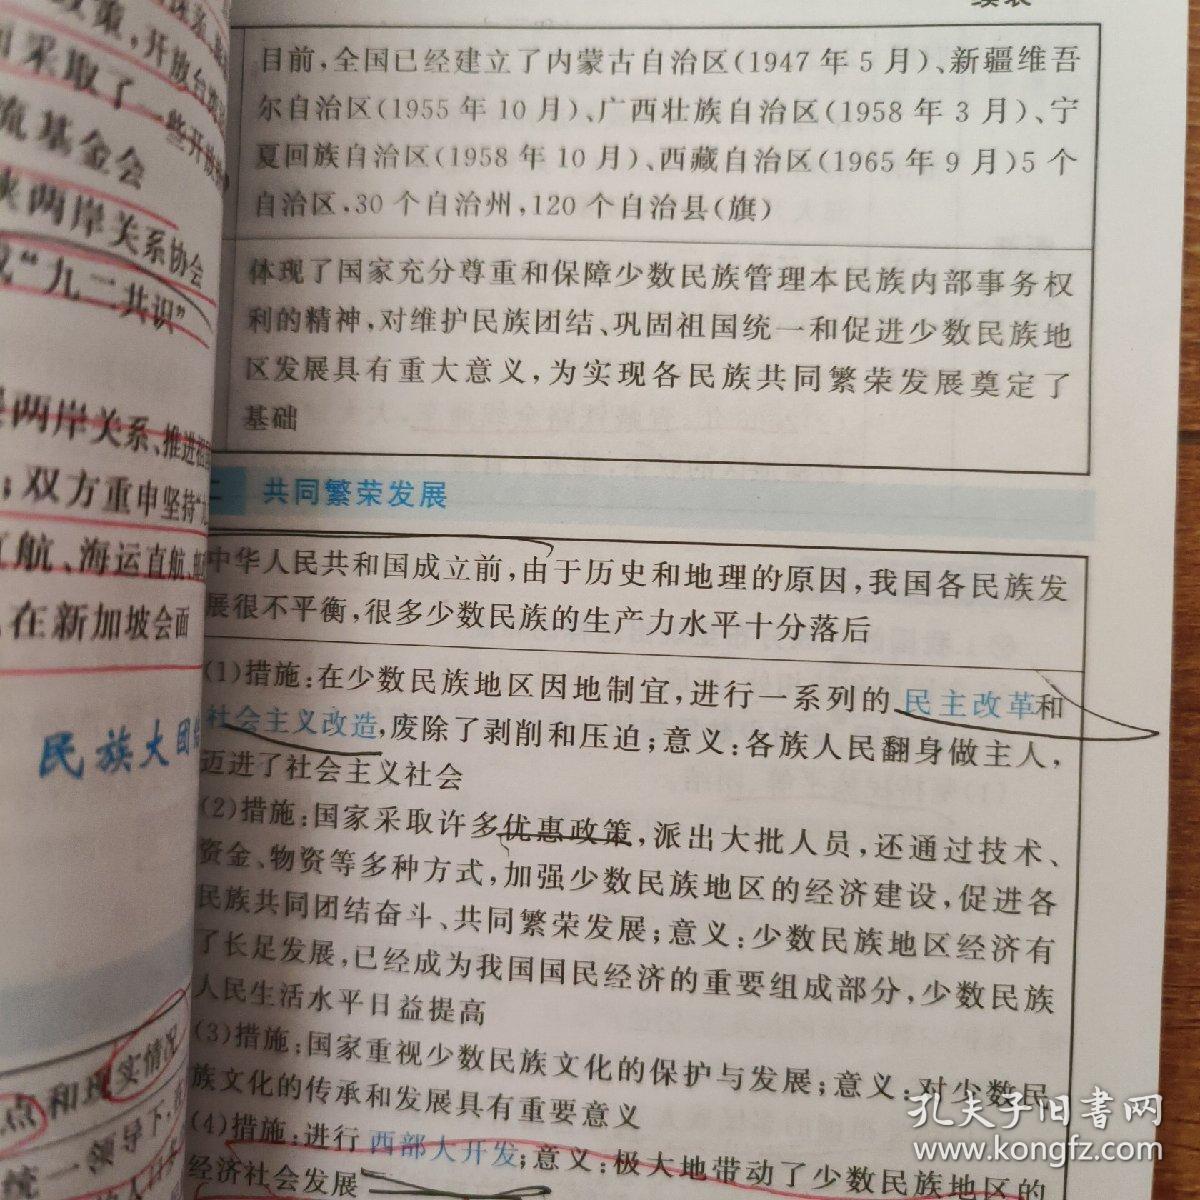 续表
目前,全国已经建立了内蒙古自治区(1947 年 5 月)、新疆维吾
尔自治区(1955 年 10 月)、广西壮族自治区(1958 年 3 月)、宁
夏回族自治区(1958 年 10 月)、西藏自治区(1965 年 9 月)5 个
自治区,30 个自治州,120 个自治县(旗)
体现了国家充分尊重和保障少数民族管理本民族内部事务权
利的精神,对维护民族团结、巩固祖国统一和促进少数民族地
区发展具有重大意义,为实现各民族共同繁荣发展奠定了
基础
二 共同繁荣发展
中华人民共和国成立前,由于历史和地理的原因,我国各民族发
展很不平衡,很多少数民族的生产力水平十分落后
(1)措施:在少数民族地区因地制宜,进行一系列的民主改革和
社会主义改造,废除了剥削和压迫;意义:各族人民翻身做主人,
迈进了社会主义社会
(2)措施:国家采取许多优惠政策,派出大批人员,还通过技术、
资金、物资等多种方式,加强少数民族地区的经济建设,促进各
民族共同团结奋斗、共同繁荣发展;意义:少数民族地区经济有
了长足发展,已经成为我国国民经济的重要组成部分,少数民族
人民生活水平日益提高
(3)措施:国家重视少数民族文化的保护与发展;意义:对少数民
族文化的传承和发展具有重要意义
(4)措施:进行西部大开发;意义:极大地带动了少数民族地区的
经济社会发展
政策,开放台
采取了一些开
流基金会
两岸关系协会
“九二共识”
两岸关系、推进祖
;双方重申坚持“
直航、海运直航、
在新加坡会面
民族大团
点和现实情况
统一领导下,
孔夫子旧书网
www.kongfz.com